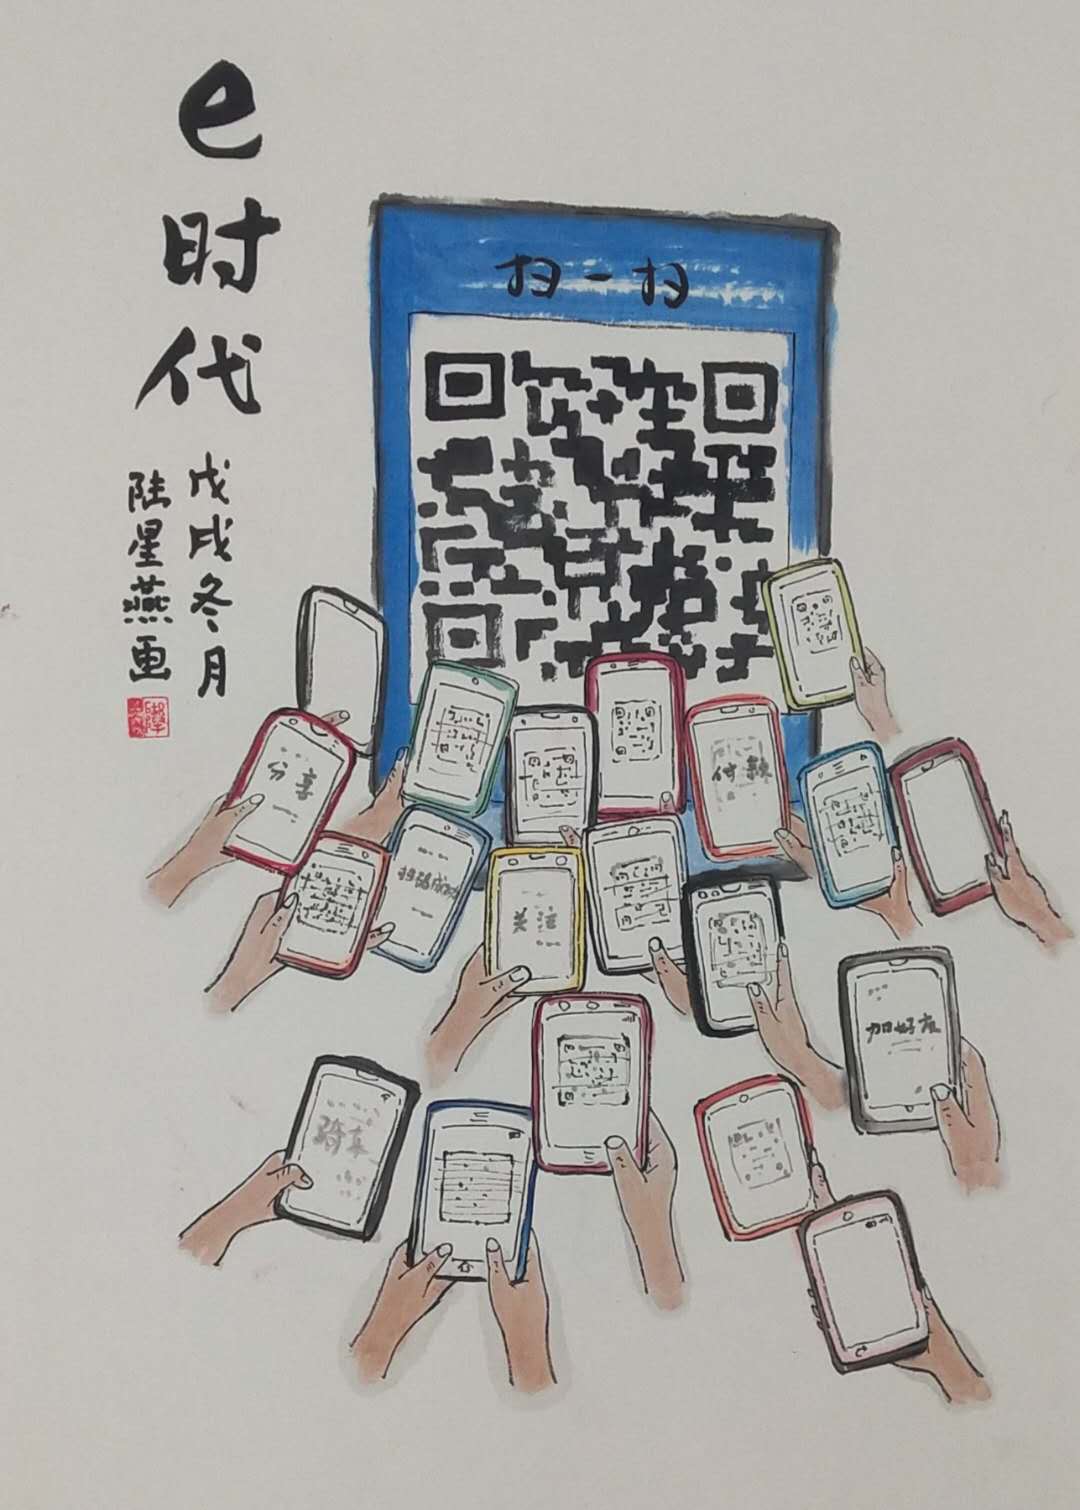 e时代
戊戌冬月
陆星燕画
扫一扫
分享
付款
扫码成功
关注
加好友
骑车